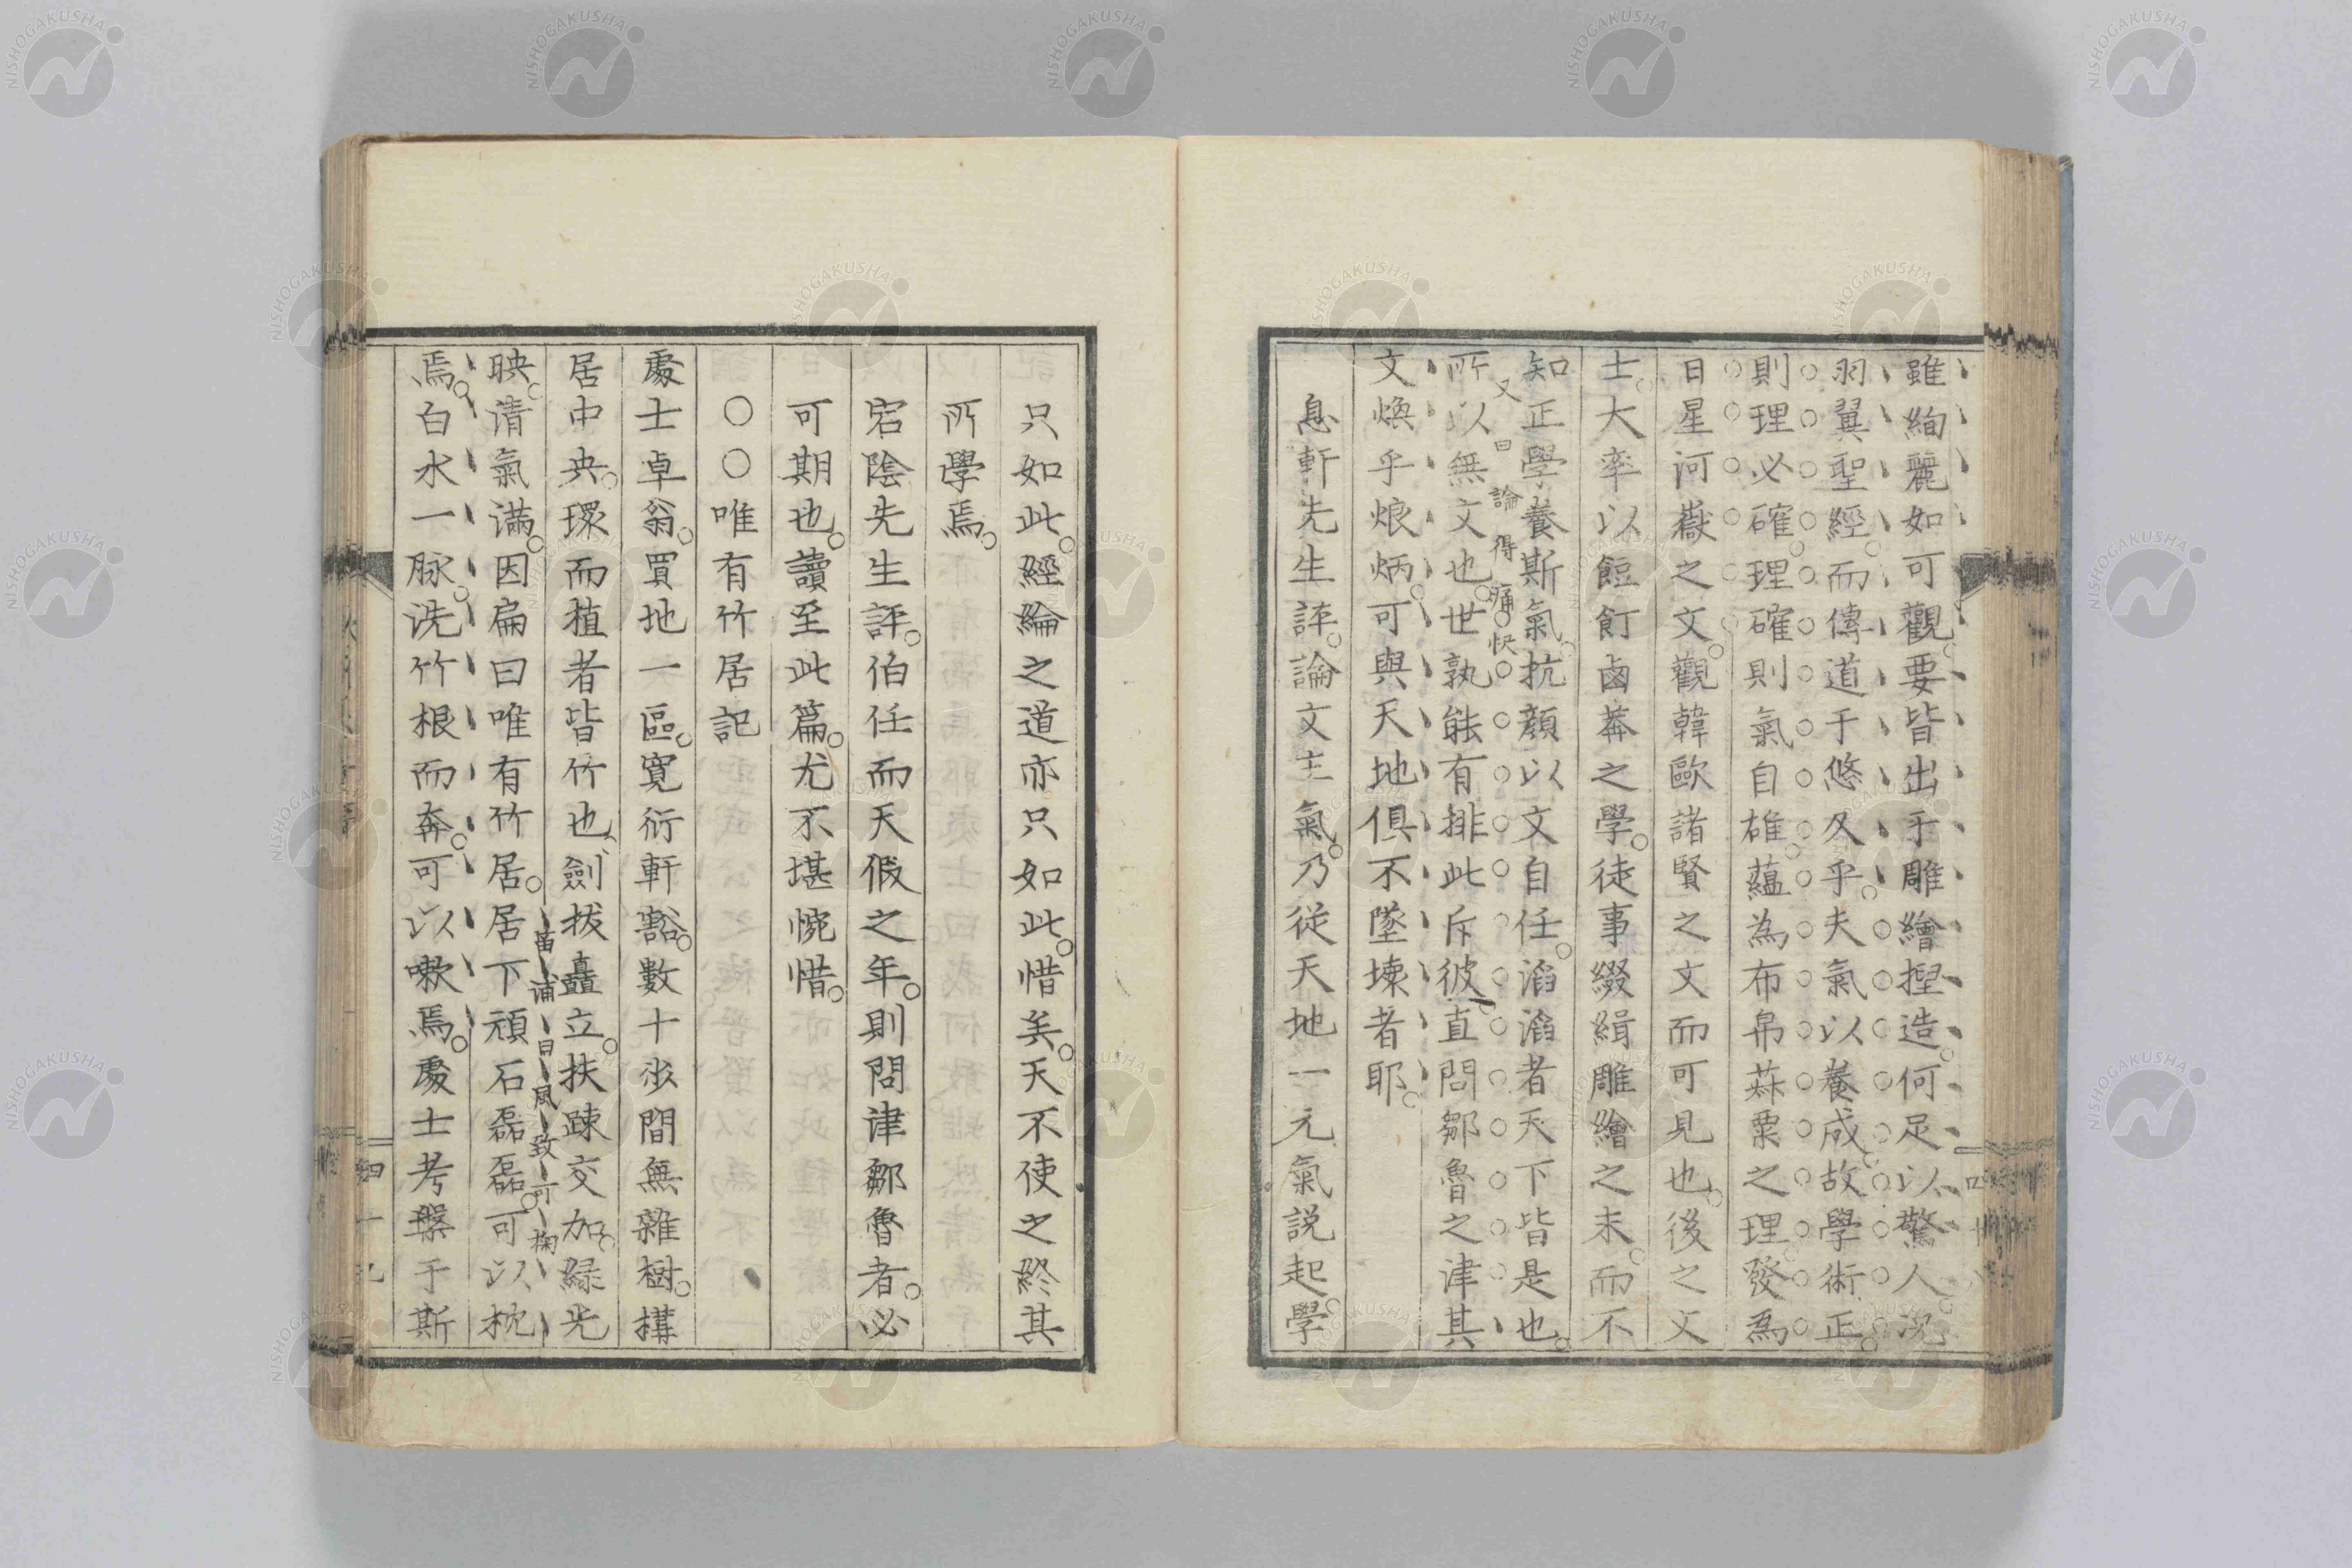 雖絢麗如可觀。要皆出乎雕繪揑造。何足以驚人。況
羽翼聖經。而傳道于悠久乎。夫氣以養成。故學術正。
則理必確。理確則氣自雄。蘊為布帛菽粟之理。發為
日星河嶽之文。觀韓歐諸賢之文而可見也。後之文
士。大率以餖飣鹵莽之學。徒事綴緝雕繪之末。而不
知正學養斯氣。抗顏以文自任。滔滔者天下皆是也。
又曰論得痛快
所以無文也。世孰能有排此斥彼。直問鄒魯之津。其
文煥乎烺炳。可與天地俱不墜壞者耶。
息軒先生評。論文主氣。乃從天地一元氣説起。學
只如此。經綸之道亦只如此。惜矣。天不使之終其
所學焉。
宕陰先生評。伯任而天假之年。則問津鄒魯者。必
可期也。讀至此篇。尤不堪惋惜。
○○唯有竹居記
處士卓翁。買地一區。寛衍軒豁。數十步間無雜樹。構
居中央。環而植者皆竹也、劍拔矗立。扶疎交加。緑光
苗浦曰風致可掬
映。清氣滿。因扁曰唯有竹居。居下頑石磊磊。可以枕
焉。白水一脉。洗竹根而奔。可以嗽焉。處士考槃于斯
四十九